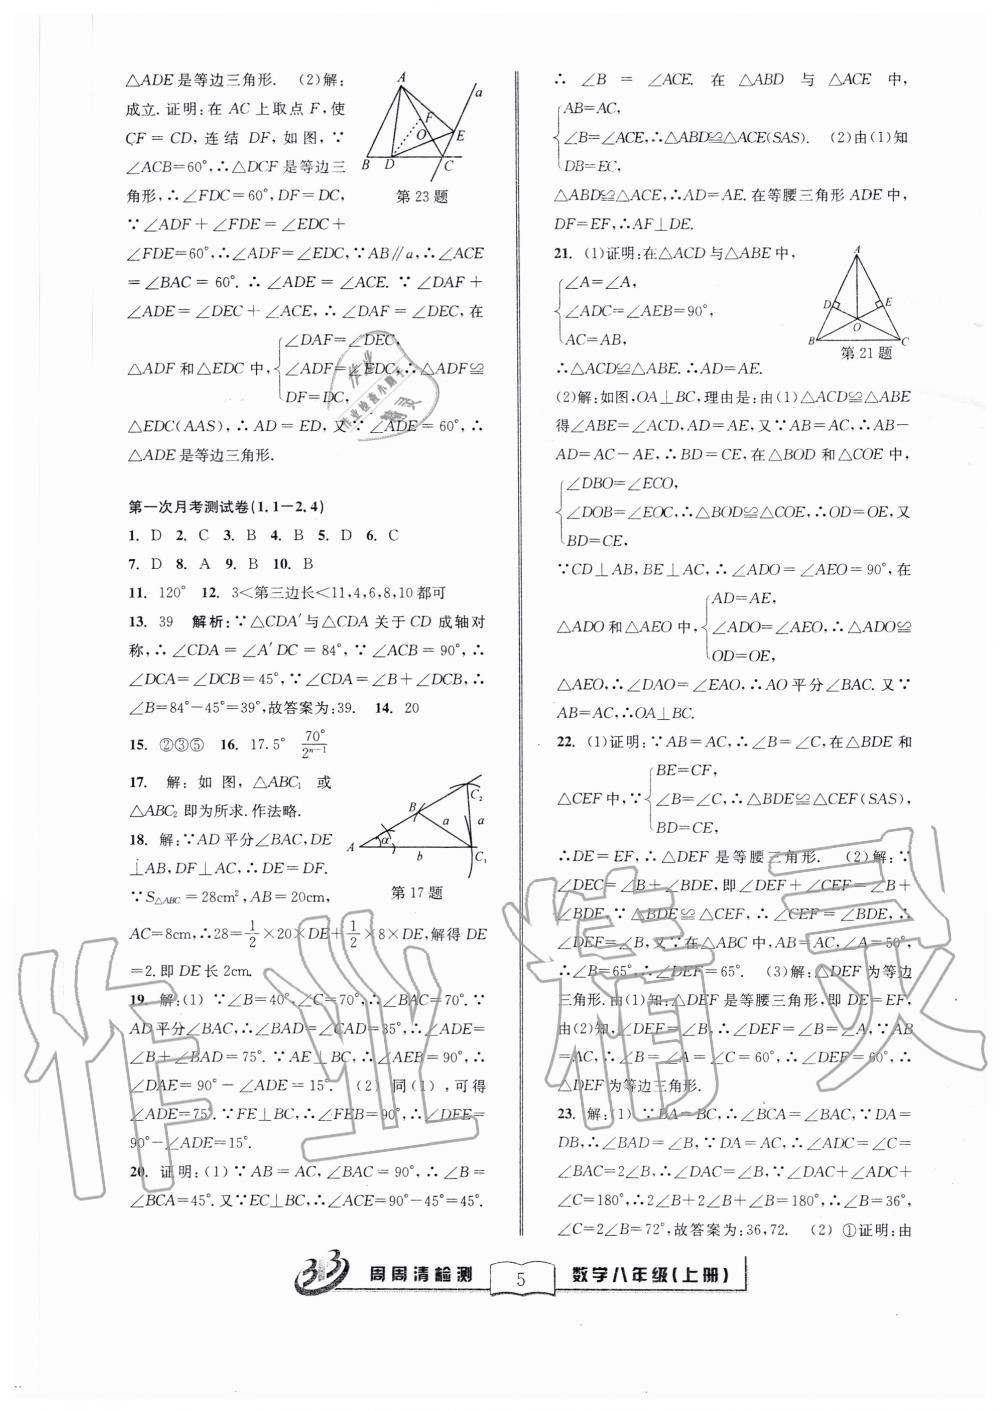 △ADE是等边三角形. (2)解:
成立.证明:在AC上取点F,使
CF=CD,连结DF,如图,∵
∠ACB=60°,∴△DCF是等边三
角形,∴∠FDC=60°,DF=DC,
∵∠ADF+∠FDE=∠EDC+
∠FDE=60°,∴∠ADF=∠EDC,∵AB∥a,∴∠ACE
=∠BAC=60°.∴∠ADE=∠ACE.∵∠DAF+
∠ADE=∠DEC+∠ACE,∴∠DAF=∠DEC,在
∠DAF=∠DEC,
△ADF和△EDC中,{∠ADF=∠EDC,∴△ADF≌
DF=DC,
△EDC(AAS),∴AD=ED,又∵∠ADE=60°,∴
△ADE是等边三角形.
A
a
F
O
E
B
D
C
第23题
第一次月考测试卷(1.1-2.4)
1. D 2. C 3. B 4. B 5. D 6. C
7. D 8. A 9. B 10. B
11. 120° 12. 3<第三边长<11,4,6,8,10都可
13. 39 解析:∵△CDA′与△CDA关于CD成轴对
称,∴∠CDA=∠A′DC=84°,∵∠ACB=90°,∴
∠DCA=∠DCB=45°,∵∠CDA=∠B+∠DCB,∴
∠B=84°-45°=39°,故答案为:39. 14. 20
15. ②③⑤ 16. 17.5° 70°/2ⁿ⁻¹
17. 解:如图,△ABC₁或
△ABC₂即为所求.作法略.
18. 解:∵AD平分∠BAC,DE
⊥AB,DF⊥AC,∴DE=DF.
∵S△ABC=28cm²,AB=20cm,
AC=8cm,∴28=1/2×20×DE+1/2×8×DE,解得DE
=2.即DE长2cm.
B
C₂
a
a
α
A
b
C₁
第17题
19. 解:(1)∵∠B=40°,∠C=70°,∴∠BAC=70°.∵
AD平分∠BAC,∴∠BAD=∠CAD=35°,∴∠ADE=
∠B+∠BAD=75°.∵AE⊥BC,∴∠AEB=90°,∴
∠DAE=90°-∠ADE=15°. (2)同(1),可得
∠ADE=75°.∵FE⊥BC,∴∠FEB=90°,∴∠DFE=
90°-∠ADE=15°.
20. 证明:(1)∵AB=AC,∠BAC=90°,∴∠B=
∠BCA=45°.又∵EC⊥BC,∴∠ACE=90°-45°=45°.
∴∠B=∠ACE.在△ABD与△ACE中,
AB=AC,
{∠B=∠ACE,∴△ABD≌△ACE(SAS). (2)由(1)知
DB=EC,
△ABD≌△ACE,∴AD=AE.在等腰三角形ADE中,
DF=EF,∴AF⊥DE.
21. (1)证明:在△ACD与△ABE中,
∠A=∠A,
{∠ADC=∠AEB=90°,
AC=AB,
∴△ACD≌△ABE.∴AD=AE.
A
D
E
O
B
C
第21题
(2)解:如图,OA⊥BC,理由是:由(1)△ACD≌△ABE
得∠ABE=∠ACD,AD=AE,又∵AB=AC,∴AB-
AD=AC-AE,∴BD=CE,在△BOD和△COE中,
∠DBO=∠ECO,
{∠DOB=∠EOC,∴△BOD≌△COE,∴OD=OE,又
BD=CE,
∵CD⊥AB,BE⊥AC,∴∠ADO=∠AEO=90°,在
AD=AE,
△ADO和△AEO中,{∠ADO=∠AEO,∴△ADO≌
OD=OE,
△AEO,∴∠DAO=∠EAO,∴AO平分∠BAC.又∵
AB=AC,∴OA⊥BC.
22. (1)证明:∵AB=AC,∴∠B=∠C,在△BDE和
BE=CF,
△CEF中,∵{∠B=∠C,∴△BDE≌△CEF(SAS),
BD=CE,
∴DE=EF,∴△DEF是等腰三角形. (2)解:∵
∠DEC=∠B+∠BDE,即∠DEF+∠CEF=∠B+
∠BDE,∵△BDE≌△CEF,∴∠CEF=∠BDE,∴
∠DEF=∠B,又∵在△ABC中,AB=AC,∠A=50°,
∴∠B=65°,∴∠DEF=65°. (3)解:△DEF为等边
三角形.由(1)知:△DEF是等腰三角形,即DE=EF,
由(2)知,∠DEF=∠B,∴∠DEF=∠B=∠A,∵AB
=AC,∴∠B=∠A=∠C=60°,∴∠DEF=60°,∴
△DEF为等边三角形.
23. 解:(1)∵BA=BC,∴∠BCA=∠BAC,∵DA=
DB,∴∠BAD=∠B,∵DA=AC,∴∠ADC=∠C=
∠BAC=2∠B,∴∠DAC=∠B,∵∠DAC+∠ADC+
∠C=180°,∴2∠B+2∠B+∠B=180°,∴∠B=36°,
∠C=2∠B=72°,故答案为:36,72. (2)①证明:由
周周清检测
5
数学八年级(上册)
作业精灵
作业
作业检查小助手
精灵